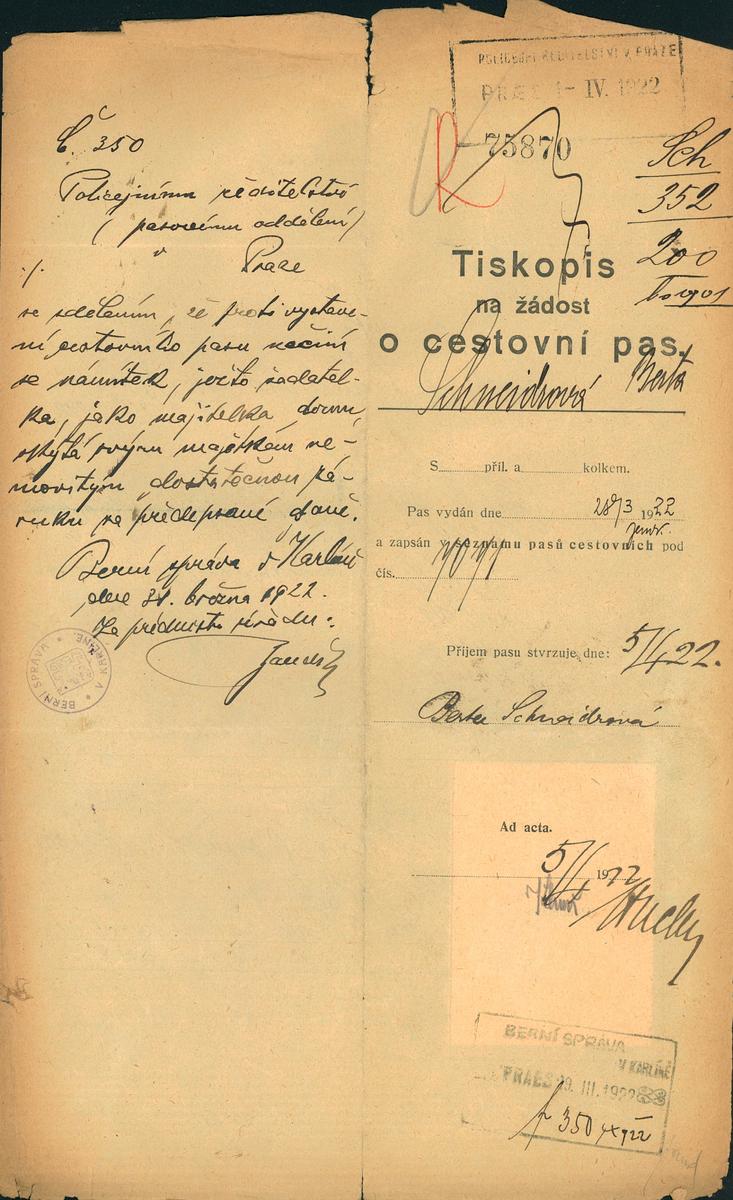 Č 350
Policejnímu ředitelství
(pasovému oddělení)
v
Praze
./.
se sdělením, že proti vystave-
ní cestovního pasu nečiní
se námitek, ježto žadatel-
ka, jako majitelka domu,
skýtá svým majetkem ne-
movitým dostatečnou zá-
ruku za předepsané daně.
Berní správa v Karlíně
dne 31. března 1922.
Za přednostu úřadu:
BERNÍ SPRÁVA V KARLÍNĚ
POLICEJNÍ ŘEDITELSTVÍ V PRAZE
PRAES 1- IV. 1922
75870
Sch
352
200
Tiskopis
na žádost
o cestovní pas.
Schneidrová Berta
S příl. a kolkem.
Pas vydán dne 28/3 1922
a zapsán v seznamu pasů cestovních pod
čís.
Příjem pasu stvrzuje dne: 5/4 22.
Berta Schneidrová
Ad acta.
5/4 1922
BERNÍ SPRÁVA
V KARLÍNĚ
PRAES 29. III. 1922
350